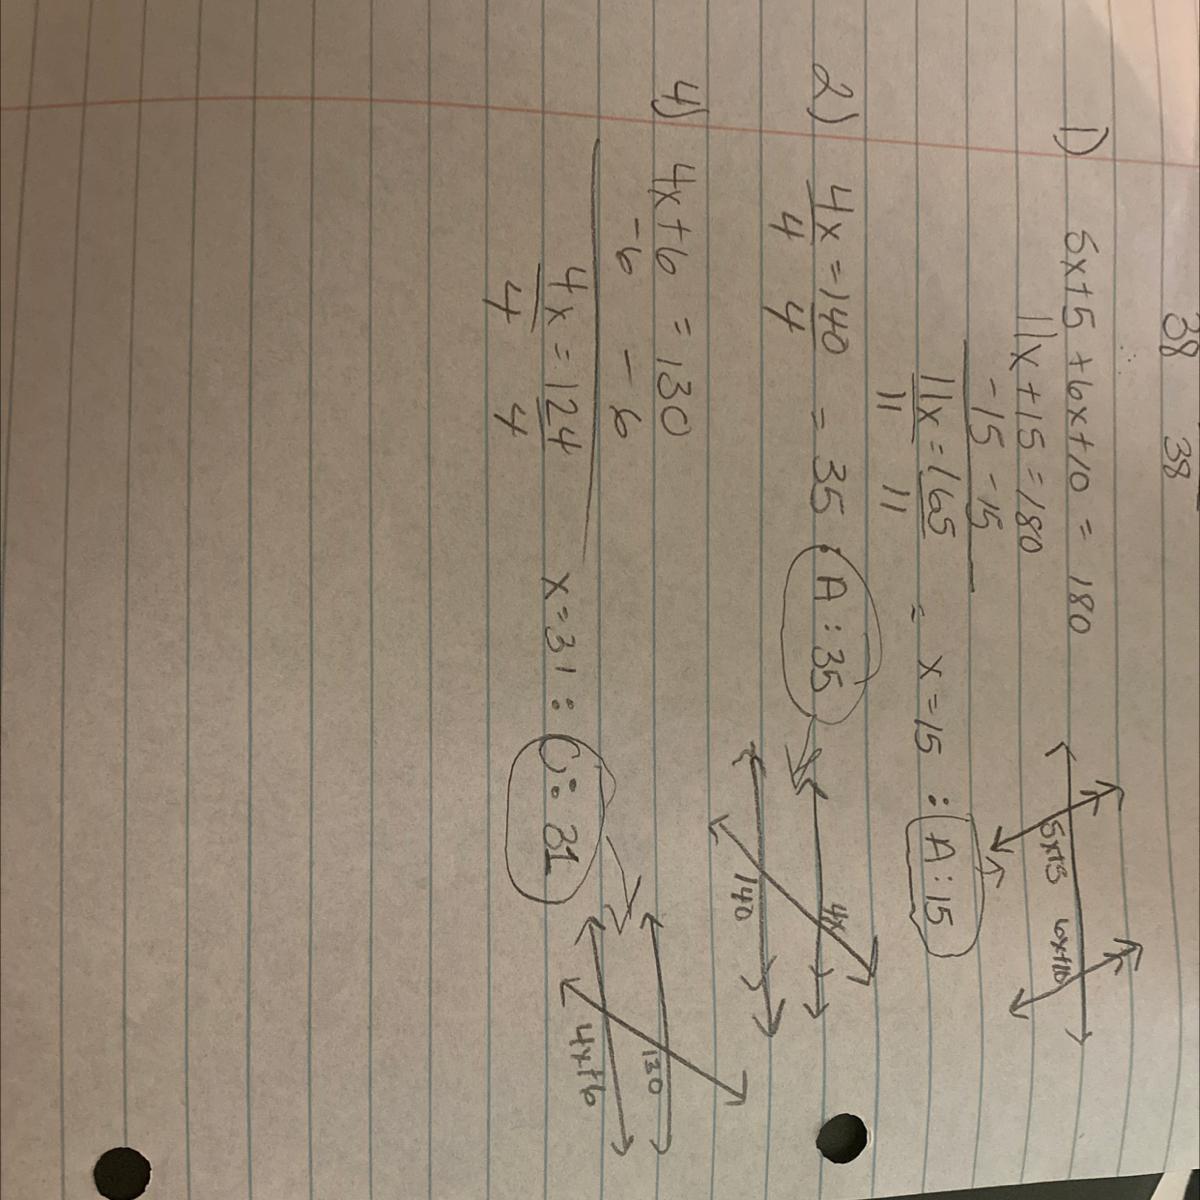 38 38
1) 5x+5 +6x+10 = 180
5x+5 6x+10
11x+15=180
-15 -15
11x=165 = x=15 : A:15
11 11
2) 4x=140 = 35 : A:35
4 4
4x
140
4) 4x+6 = 130
-6 -6
4x=124 x=31 : C: 31
4 4
130
4x+6